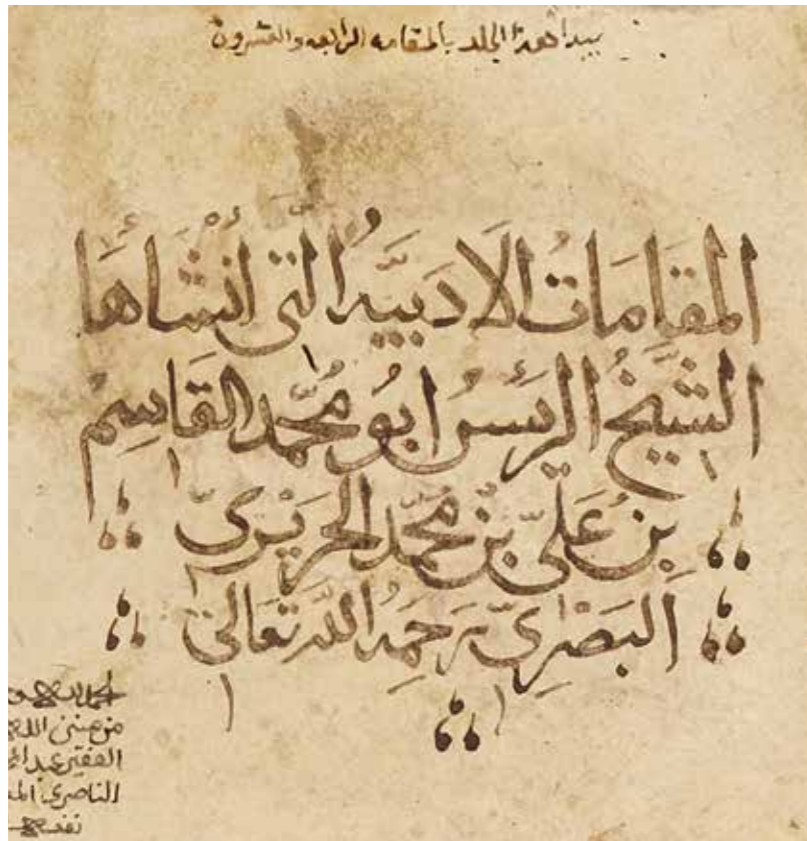 يبدا هذا الجلد بالمقامه الرابعه والعشرون
المقَامَاتُ الاَدَبيَّه الَّتى أنْشَأهَا
الشَّيْخُ الرئيسُ ابُو مُحمَّد القَاسِمُ
بنُ عَلىّ بنْ محمَّد الحَريْرىّ
البَصْرِىّ رَحِمُه اللَّه تعَالىَ
الحمد لله
من منن الله
الفقير عبد
الناصرى